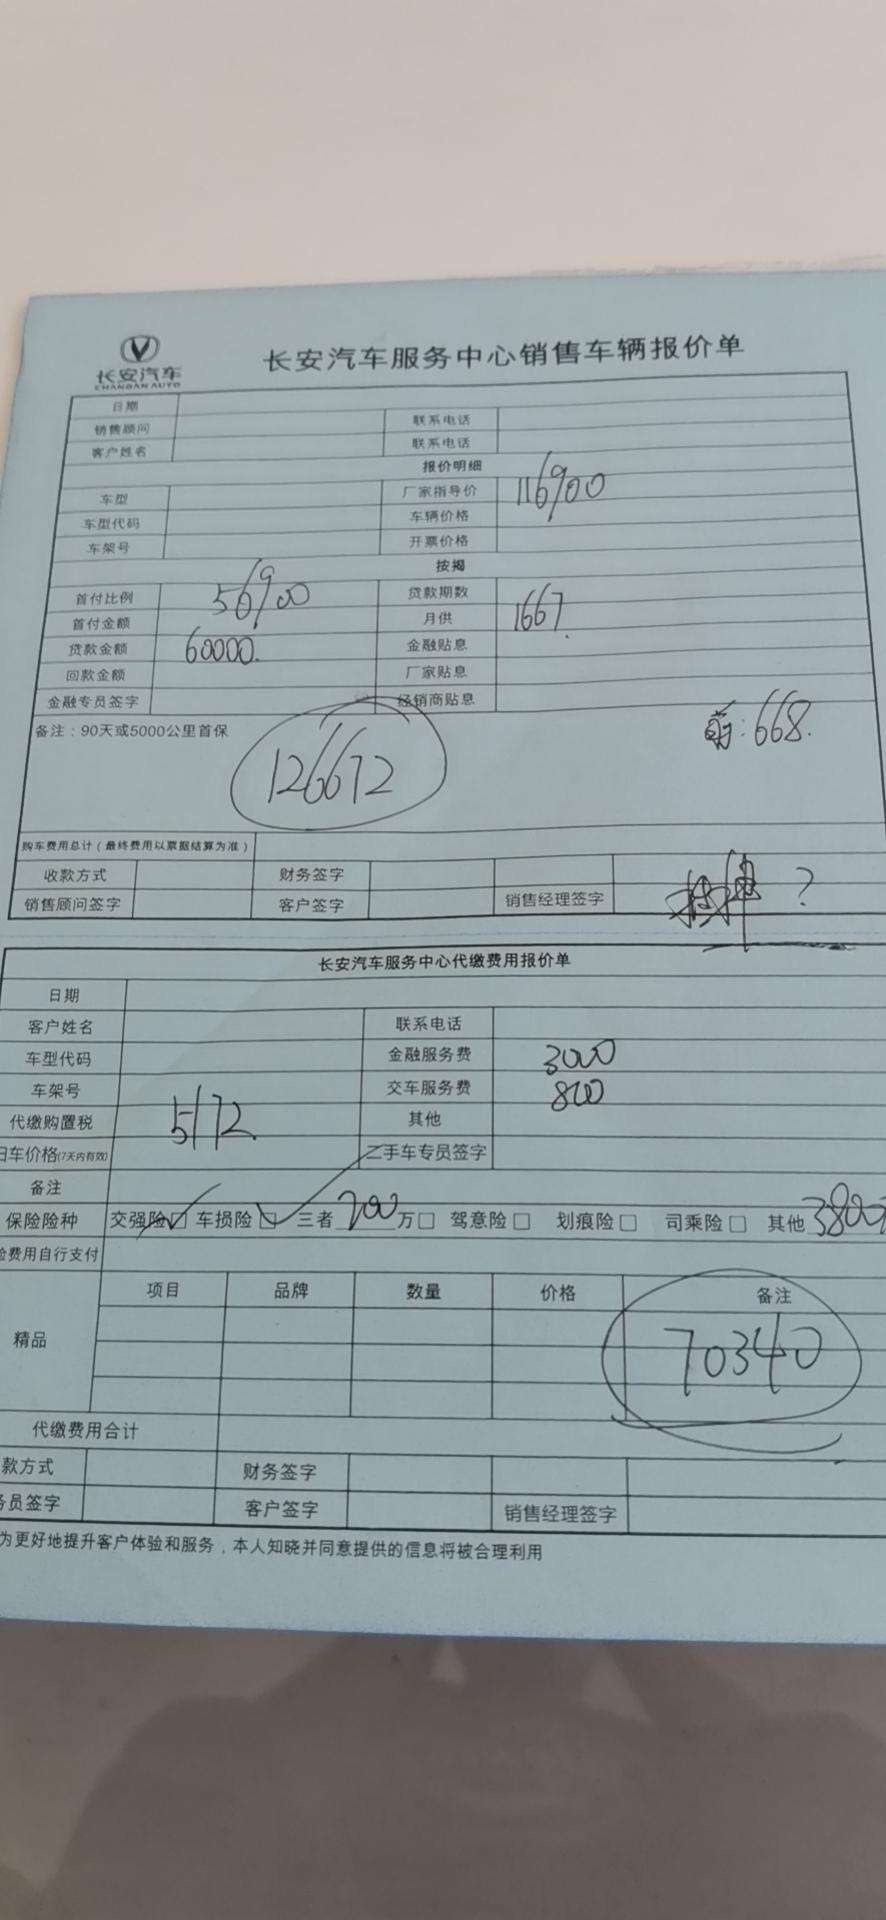 长安汽车
CHANGAN AUTO
长安汽车服务中心销售车辆报价单
日期
销售顾问 联系电话
客户姓名 联系电话
报价明细
车型 厂家指导价 116900
车型代码 车辆价格
车架号 开票价格
按揭
首付比例 56900 贷款期数
首付金额 月供 1667.
贷款金额 60000. 金融贴息
回款金额 厂家贴息
金融专员签字 经销商贴息
备注：90天或5000公里首保
:668.
126672
购车费用总计（最终费用以票据结算为准）
收款方式 财务签字
销售顾问签字 客户签字 销售经理签字
?
长安汽车服务中心代缴费用报价单
日期
客户姓名 联系电话
车型代码 金融服务费 3000
车架号 交车服务费 800
代缴购置税 5172 其他
旧车价格(7天内有效) 二手车专员签字
备注
保险险种 交强险□ 车损险□ 三者 200 万□ 驾意险□ 划痕险□ 司乘险□ 其他 3800
险费用自行支付
精品 项目 品牌 数量 价格 备注
70340
代缴费用合计
款方式 财务签字
务员签字 客户签字 销售经理签字
为更好地提升客户体验和服务，本人知晓并同意提供的信息将被合理利用